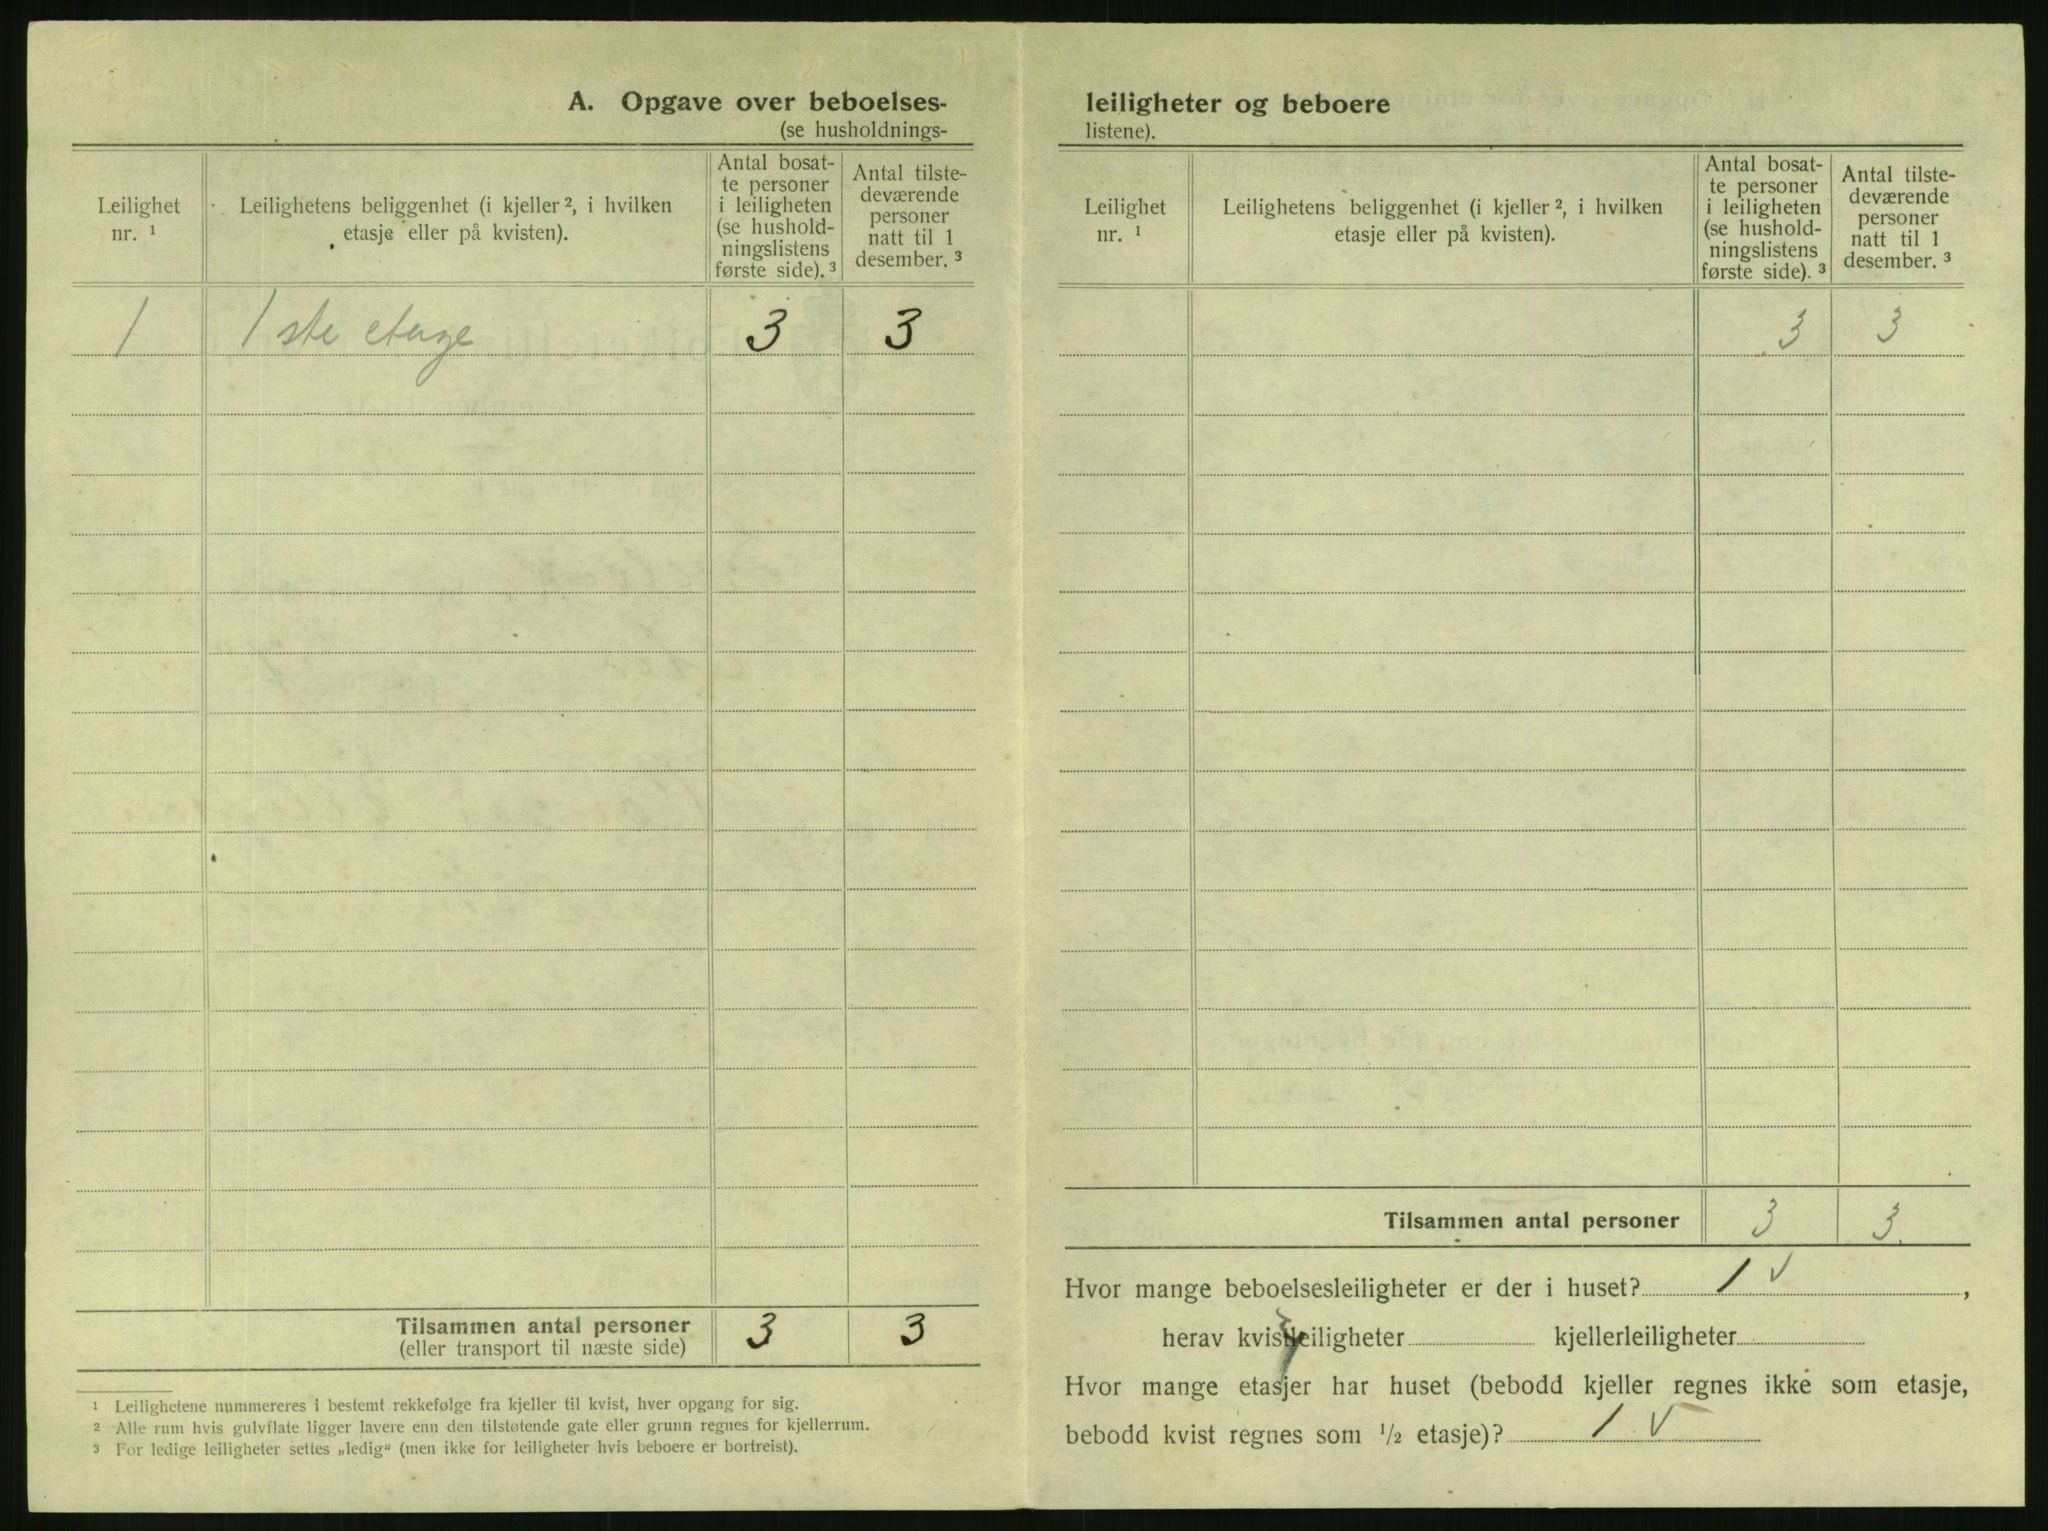 A. Opgave over beboelses-
(se husholdnings-
Leilighet nr. ¹
Leilighetens beliggenhet (i kjeller ², i hvilken
etasje eller på kvisten).
Antal bosat-
te personer
i leiligheten
(se hushold-
ningslistens
første side). ³
Antal tilste-
deværende
personer
natt til 1
desember. ³
1 1ste etage 3 3
Tilsammen antal personer 3 3
(eller transport til næste side)
¹ Leilighetene nummereres i bestemt rekkefølge fra kjeller til kvist, hver opgang for sig.
² Alle rum hvis gulvflate ligger lavere enn den tilstøtende gate eller grunn regnes for kjellerrum.
³ For ledige leiligheter settes „ledig“ (men ikke for leiligheter hvis beboere er bortreist).
leiligheter og beboere
listene).
Leilighet
nr. ¹
Leilighetens beliggenhet (i kjeller ², i hvilken
etasje eller på kvisten).
Antal bosat-
te personer
i leiligheten
(se hushold-
ningslistens
første side). ³
Antal tilste-
deværende
personer
natt til 1
desember. ³
3 3
Tilsammen antal personer 3 3.
Hvor mange beboelsesleiligheter er der i huset? 1 √,
herav kvistleiligheter kjellerleiligheter
Hvor mange etasjer har huset (bebodd kjeller regnes ikke som etasje,
bebodd kvist regnes som ½ etasje)? 1 √